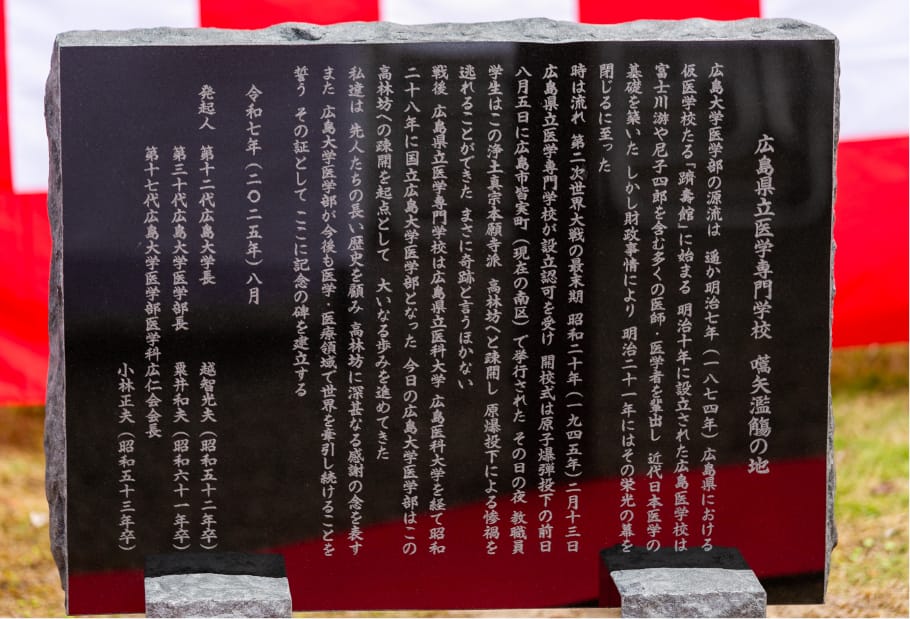 広島県立医学専門学校　嚆矢濫觴の地
広島大学医学部の源流は　遥か明治七年（一八七四年）広島県における
仮医学校たる「躋壽館」に始まる　明治十年に設立された広島医学校は
富士川游や尼子四郎を含む多くの医師・医学者を輩出し　近代日本医学の
基礎を築いた　しかし財政事情により　明治二十一年にはその栄光の幕を
閉じるに至った
時は流れ　第二次世界大戦の最末期　昭和二十年（一九四五年）二月十三日
広島県立医学専門学校が設立認可を受け　開校式は原子爆弾投下の前日
八月五日に広島市皆実町（現在の南区）で挙行された　その日の夜　教職員
学生はこの浄土真宗本願寺派　高林坊へと疎開し　原爆投下による惨禍を
逃れることができた　まさに奇跡と言うほかない
戦後　広島県立医学専門学校は広島県立医科大学　広島医科大学を経て昭和
二十八年に国立広島大学医学部となった　今日の広島大学医学部はこの
高林坊への疎開を起点として　大いなる歩みを進めてきた
私達は　先人たちの長い歴史を顧み　高林坊に深甚なる感謝の念を表す
また　広島大学医学部が今後も医学・医療領域で世界を牽引し続けることを
誓う　その証として　ここに記念の碑を建立する
令和七年（二〇二五年）八月
発起人　第十二代広島大学長　越智光夫（昭和五十二年卒）
第三十代広島大学医学部長　粟井和夫（昭和六十一年卒）
第十七代広島大学医学部医学科広仁会会長
小林正夫（昭和五十三年卒）